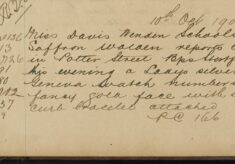 10th Oct 190
2136 Miss Davis Wenden School
13 Saffron Walden reports
726 in Potter Street Bps Stort
his evening a Ladys silver
Geneva watch number
fancy gold face with
37 curb bracelet attached
PC 166